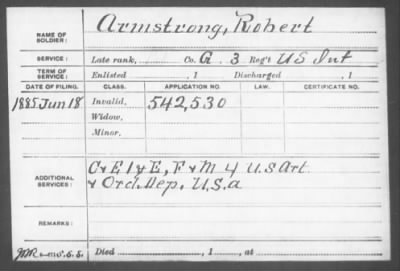 Armstrong, Robert
NAME OF
SOLDIER:
SERVICE: Late rank, Co. G. 3 Reg't US Inf
TERM OF
SERVICE: Enlisted , 1 Discharged , 1
DATE OF FILING. CLASS. APPLICATION NO. LAW. CERTIFICATE NO.
1885 Jun 18 Invalid, 542,530
Widow,
Minor,
ADDITIONAL
SERVICES:
C & E 1 & E, F & M 4 U.S Art
& Ord. Dep. U.S.a
REMARKS:
Died , 1 , at